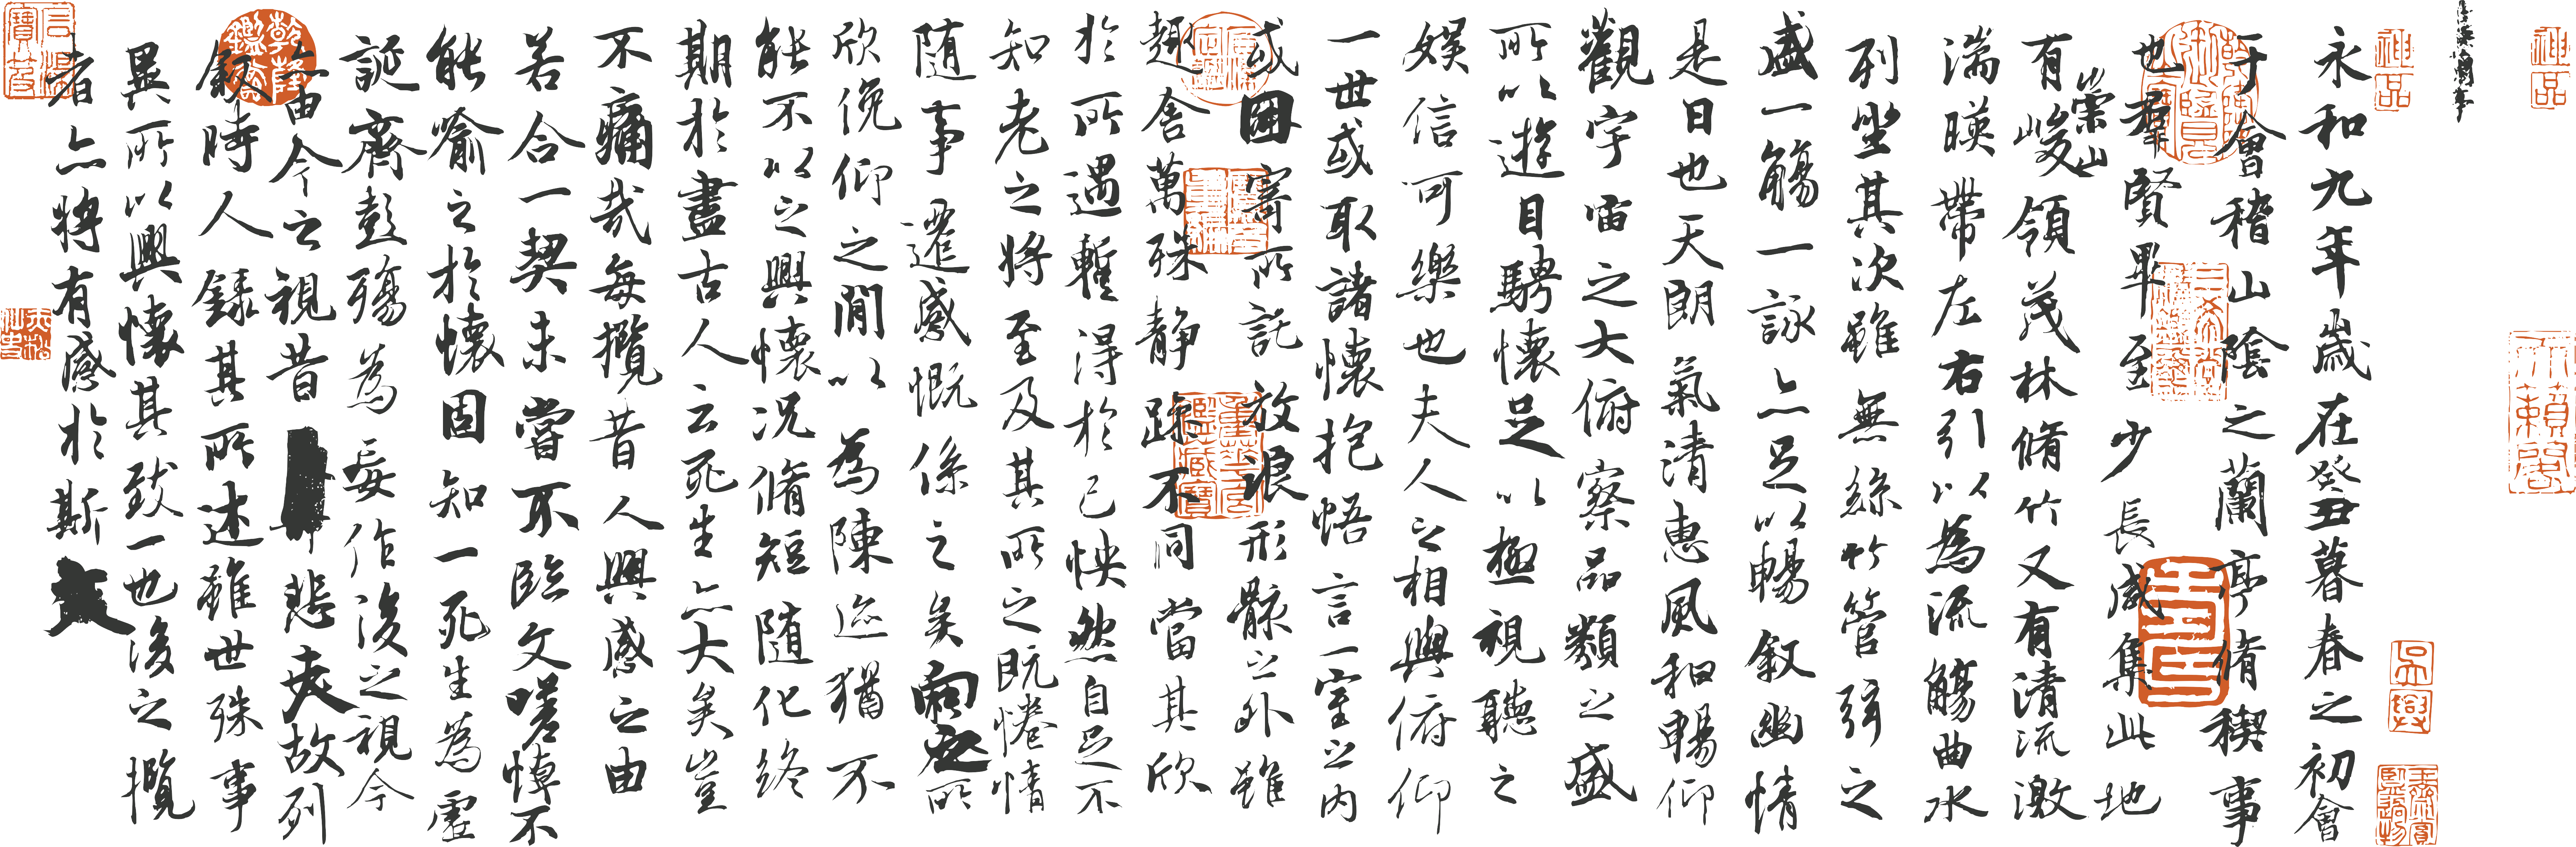 神品
唐模蘭亭
神品
吳興
永和九年歲在癸丑暮春之初會
于會稽山陰之蘭亭脩稧事
也羣賢畢至少長咸集此地
有崇山峻領茂林脩竹又有清流激
湍暎帶左右引以為流觴曲水
列坐其次雖無絲竹管弦之
盛一觴一詠亦足以暢叙幽情
是日也天朗氣清惠風和暢仰
觀宇宙之大俯察品類之盛
所以遊目騁懷足以極視聽之
娛信可樂也夫人之相與俯仰
一世或取諸懷抱悟言一室之內
或因寄所託放浪形骸之外雖
趣舍萬殊静躁不同當其欣
於所遇蹔得於己怏然自足不
知老之將至及其所之既惓情
随事遷感慨係之矣向之所
欣俛仰之閒以為陳迹猶不
能不以之興懷況脩短随化終
期於盡古人云死生亦大矣豈
不痛哉每攬昔人興感之由
若合一契未嘗不臨文嗟悼不
能喻之於懷固知一死生為虛
誕齊彭殤為妄作後之視今
亦由今之視昔悲夫故列
叙時人錄其所述雖世殊事
異所以興懷其致一也後之攬
者亦將有感於斯文